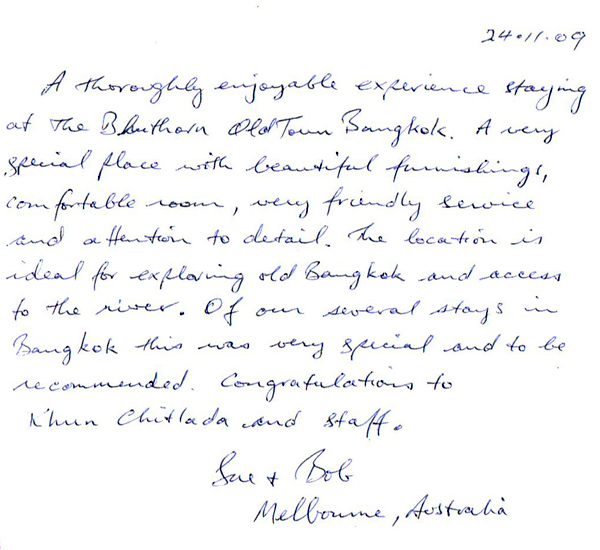 24.11.09
A thoroughly enjoyable experience staying
at The Bhuthorn Old Town Bangkok. A very
special place with beautiful furnishings,
comfortable room, very friendly service
and attention to detail. The location is
ideal for exploring old Bangkok and access
to the river. Of our several stays in
Bangkok this was very special and to be
recommended. Congratulations to
Khun Chitlada and staff.
Sue + Bob
Melbourne, Australia